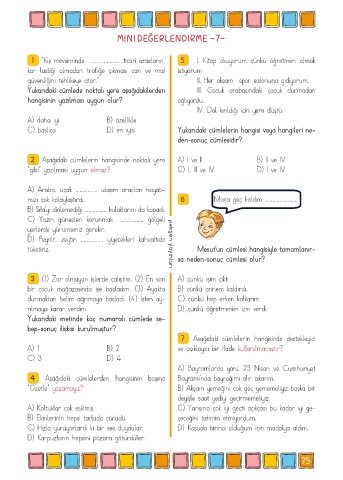 MİNİ DEĞERLENDİRME -7-
1 "Kış mevsiminde ................ticari araçların,
kar lastiği olmadan trafiğe çıkması can ve mal
güvenliğini tehlikeye atar."
Yukarıdaki cümlede noktalı yere aşağıdakilerden
hangisinin yazılması uygun olur?
A) daha iyi B) özellikle
C) başlıca D) en iyisi
2 Aşağıdaki cümlelerin hangisinde noktalı yere
"gibi" yazılması uygun olmaz?
A) Araba, uçak ............ ulaşım araçları hayatı-
mızı çok kolaylaştırdı.
B) Silahı dinlemediği ............ kulaklarını da kapadı.
C) Yazın güneşten korunmak ............ gölgeli
yerlerde yürümemiz gerekir.
D) Peynir, zeytin ............ yiyecekleri kahvaltıda
tüketiriz.
3 (1) Zor olmayan işlerde çalıştım. (2) En son
bir çocuk mağazasında işe başladım. (3) Ayakta
durmaktan belim ağrımaya başladı. (4) İşten ay-
rılmaya karar verdim.
Yukarıdaki metinde kaç numaralı cümlede se-
bep-sonuç ilişkisi kurulmuştur?
A) 1 B) 2
C) 3 D) 4
4 Aşağıdaki cümlelerden hangisinin başına
"Özetle" yazamayız?
A) Koltuklar çok eskimiş.
B) Elinlerinin hepsi tarlada çürüdü.
C) Hızla yürüyorlardı ki bir ses duydular.
D) Karpuzların hepsini pazara götürdüler.
5 I. Kitap okuyorum çünkü öğretmen olmak
istiyorum
II. Her akşam spor salonuna gidiyorum.
III. Çocuk arabasındaki çocuk durmadan
ağlıyordu.
IV. Dal kırıldığı için yere düştü.
Yukarıdaki cümlelerin hangisi veya hangileri ne-
den-sonuç cümlesidir?
A) I ve II B) II ve IV
C) I, III ve IV D) I ve IV
6 Maça geç kaldım ................
Mesut'un cümlesi hangisiyle tamamlanır-
sa neden-sonuç cümlesi olur?
A) çünkü işim çıktı.
B) çünkü annem kaldırdı.
C) çünkü hep erken kalkarım.
D) çünkü öğretmenim izin verdi.
7 Aşağıdaki cümlelerin hangisinde destekleyici
ve açıklayıcı bir ifade kullanılmamıştır?
A) Bayramlarda yani, 23 Nisan ve Cumhuriyet
Bayramı'nda bayrağımı alır çıkarım.
B) Akşam yemeğini çok geç yememeliyiz başka bir
deyişle saat yediyi geçirmemeliyiz.
C) Yarışma çok iyi geçti açıkçası bu kadar iyi ge-
çeceğini tahmin etmiyordum.
D) Koşuda birinci olduğum için madalya aldım.
75